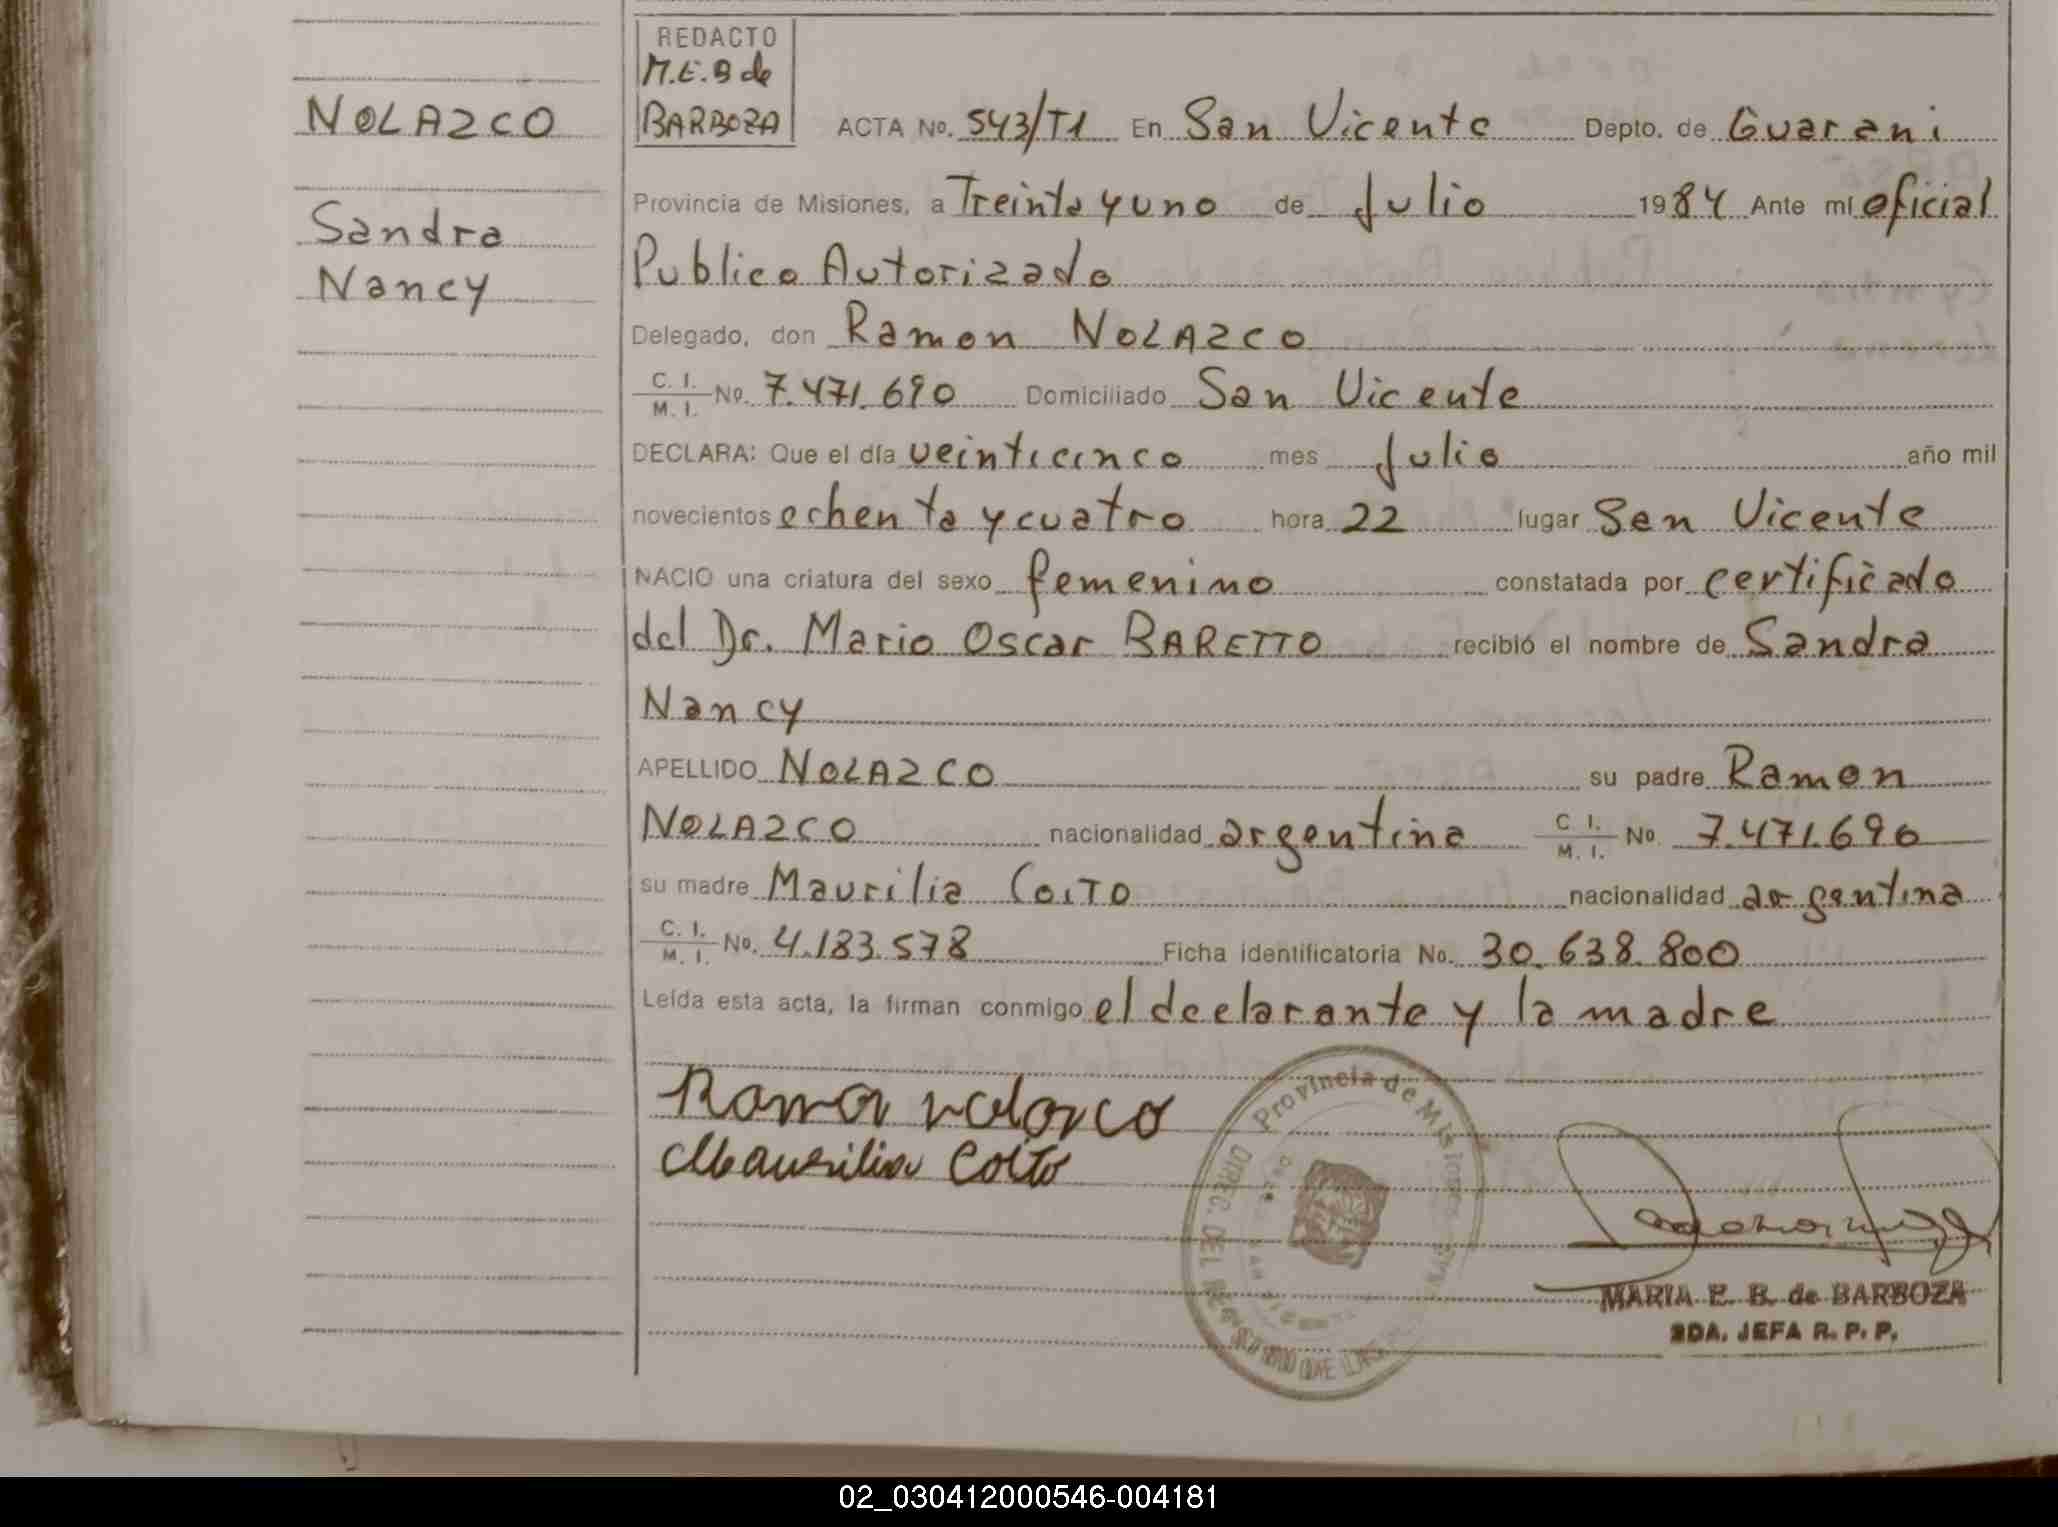 NOLAZCO
Sandra
Nancy
REDACTO
M.E.B de
BARBOZA
ACTA No. 543/T1 En San Vicente Depto. de Guarani
Provincia de Misiones, a Treinta y uno de Julio 1984 Ante mí oficial
Publico Autorizado
Delegado, don Ramon NOLAZCO
C. I. M. I. No. 7.471.690 Domiciliado San Vicente
DECLARA: Que el día veinticinco mes Julio año mil
novecientos ochenta y cuatro hora 22 lugar San Vicente
NACIO una criatura del sexo femenino constatada por certificado
del Dr. Mario Oscar BARETTO recibió el nombre de Sandra
Nancy
APELLIDO NOLAZCO su padre Ramon
NOLAZCO nacionalidad argentina C. I. M. I. No. 7.471.690
su madre Maurilia COITO nacionalidad argentina
C. I. M. I. No. 4.183.578 Ficha identificatoria No. 30.638.800
Leída esta acta, la firman conmigo el declarante y la madre
Ramon nolazco
Maurilia Coito
Provincia de Misiones
DIREC. DEL
MARIA E. B. de BARBOZA
2DA. JEFA R. P. P.
02_030412000546-004181